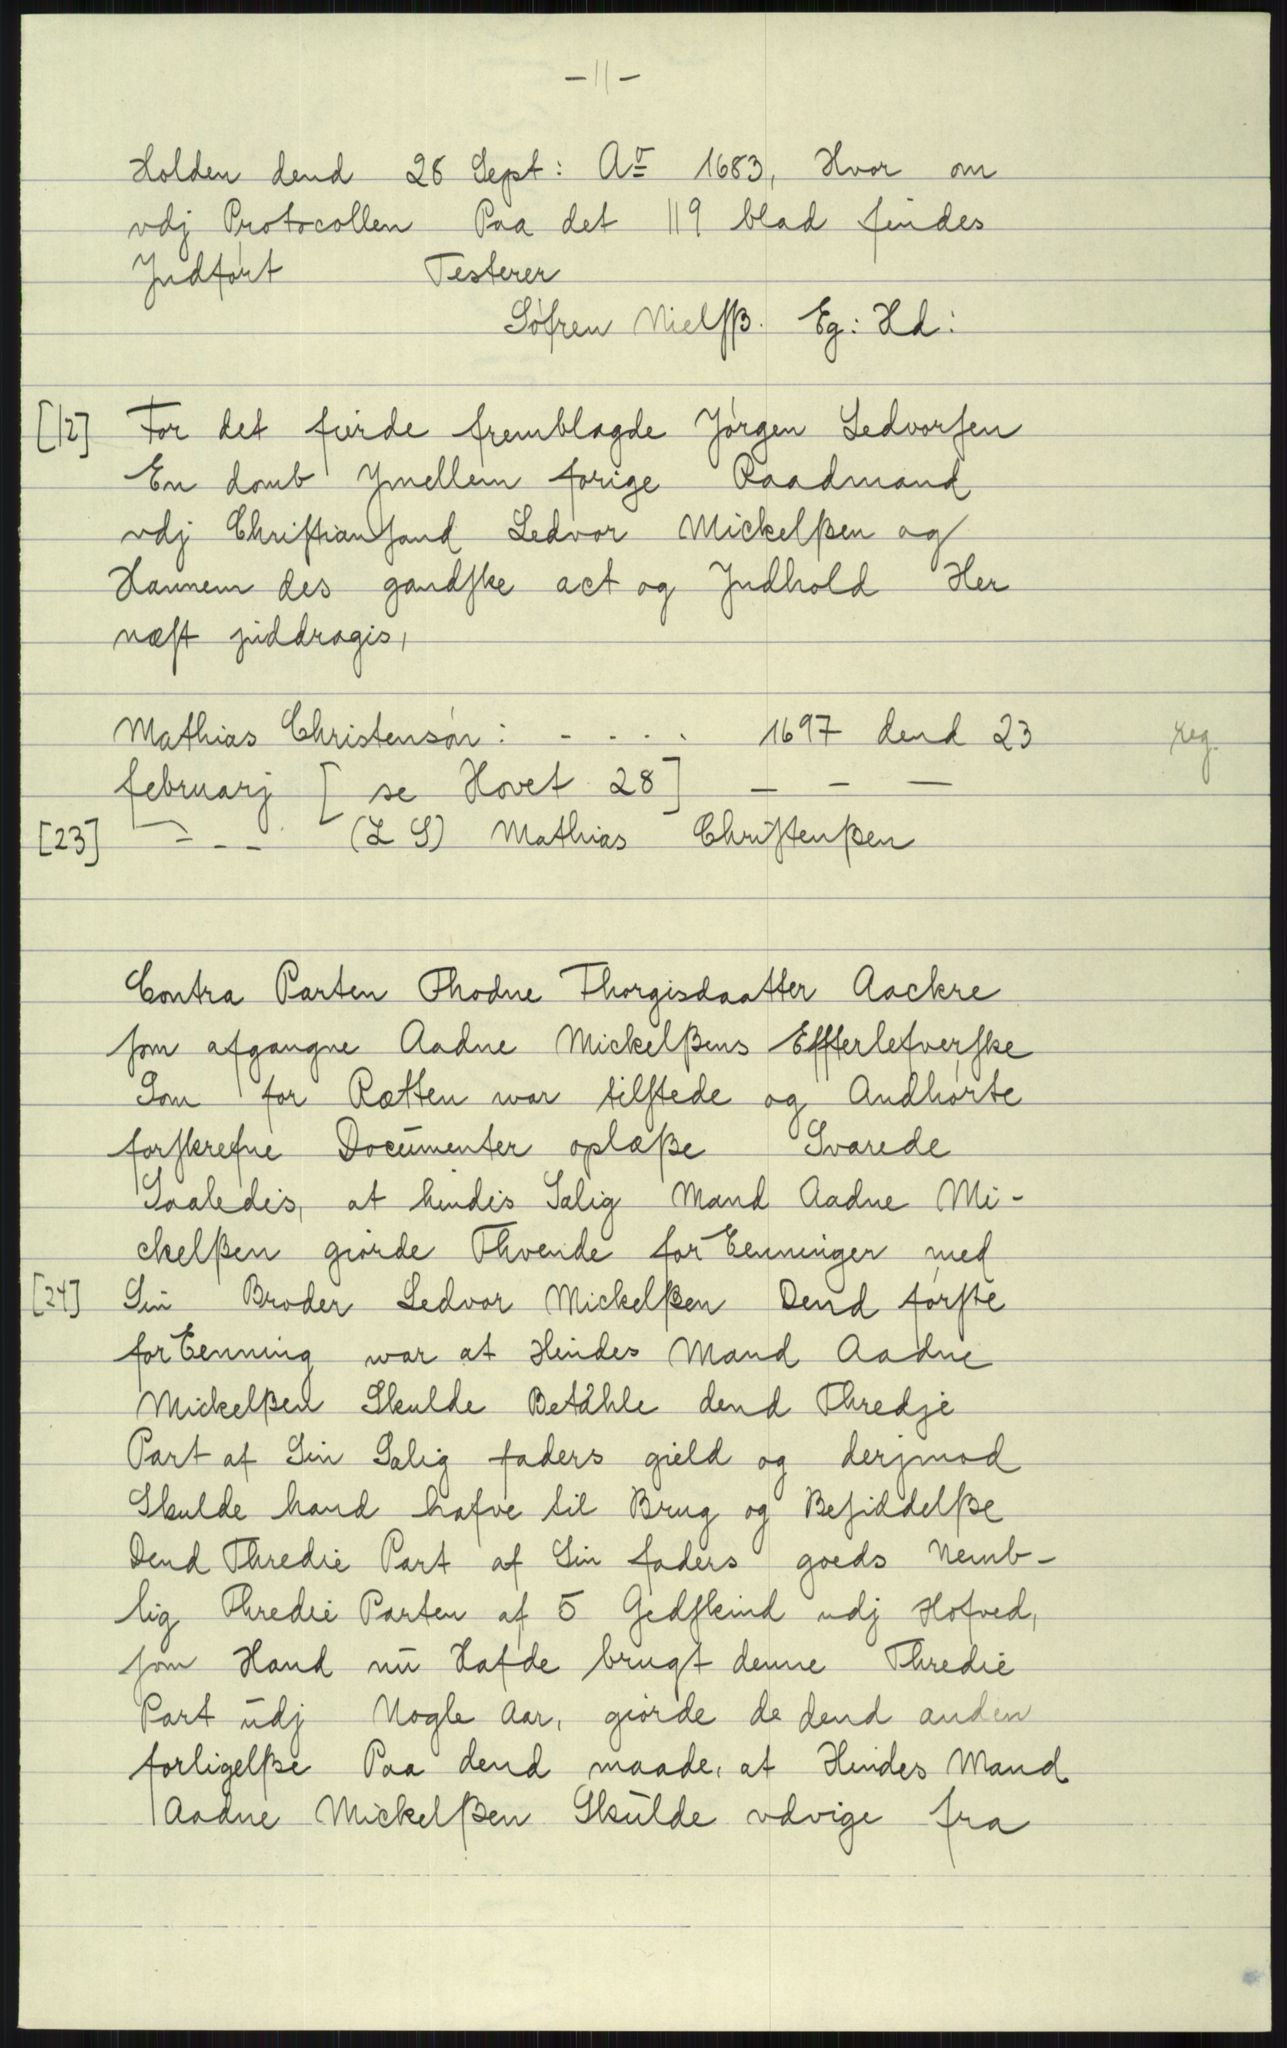 -11-
Holden dend 28 Sept: Aº 1683, Hvor om
vdj Protocollen Paa det 119 blad findes
Jndført Testerer
Søfren Nielsß. Eg: Hd:
[12] For det fierde fremblagde Jørgen Ledvorsen
En domb Jmellem forige Raadmand
vdj Christiansand Ledvor Mickelßen og
Hannem des gandske act og Jndhold Her
næst jnddragis,
Mathias Christensøn: - . . . 1697 dend 23 reg.
februarj [se Hovet 28] - - -
[23] - - - (L S) Mathias Christenßen
Contra Parten Thodne Thorgisdaatter Aackre
som afgangne Aadne Mickelßens Effterlefverske
Som for Rætten war tilstede og Andhørte
forskrefne Documenter oplæße Svarede
Saaledis, at hindis Salig Mand Aadne Mi-
ckelßen giorde Thvende forEenninger med
[24] Sin Broder Ledvor Mickelßen Dend første
forEenning war at Hindes Mand Aadne
Mickelßen Skulde Betahle dend Thredje
Part af Sin Salig faders gield og derjmod
Skulde hand hafve til Brug og Besiddelße
Dend Thredie Part af Sin faders goeds Nemb-
lig Thredie Parten af 5 Gedskind udj Hofved,
som Hand nu Hafde brugt denne Thredie
Part udj Nogle Aar, giorde de dend anden
forligelße Paa dend maade, at Hindes Mand
Aadne Mickelßen Skulde vdvige fra